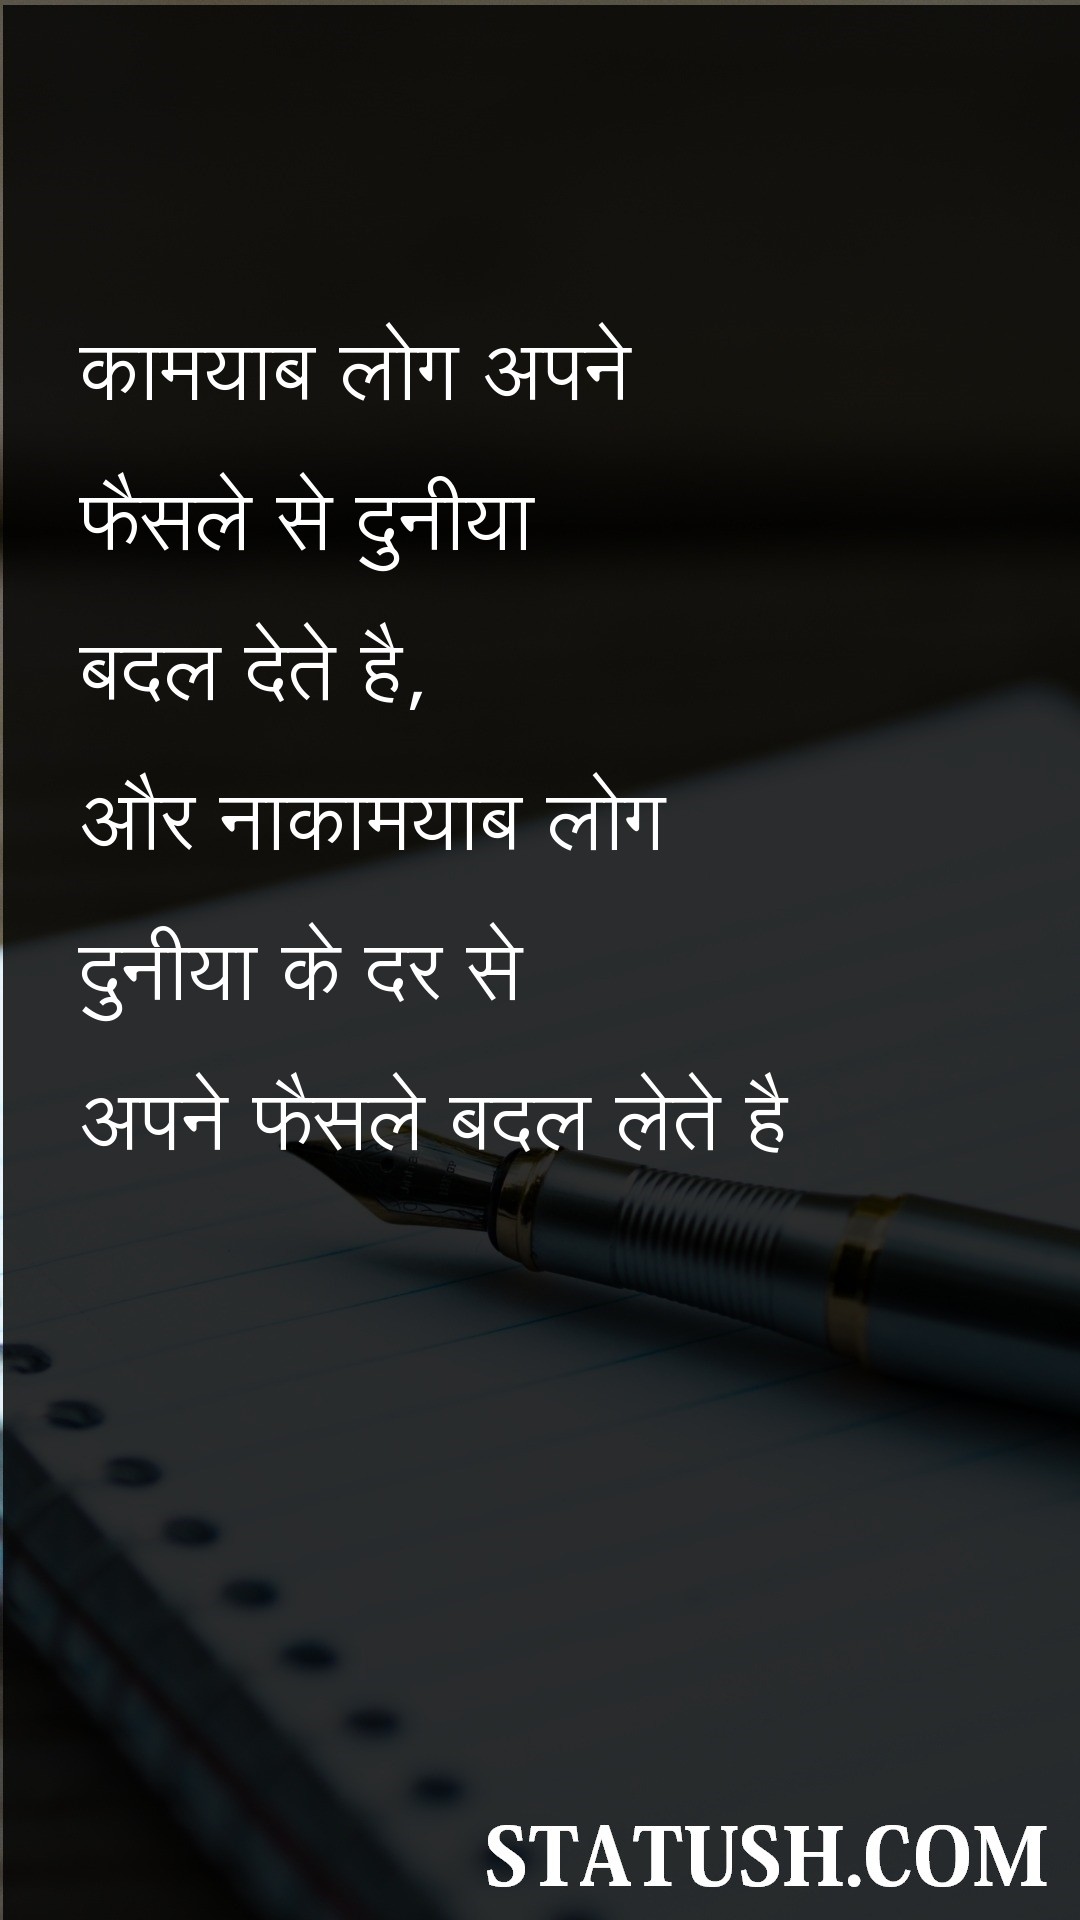 कामयाब लोग अपने
फैसले से दुनीया
बदल देते है,
और नाकामयाब लोग
दुनीया के दर से
अपने फैसले बदल लेते है
STATUSH.COM